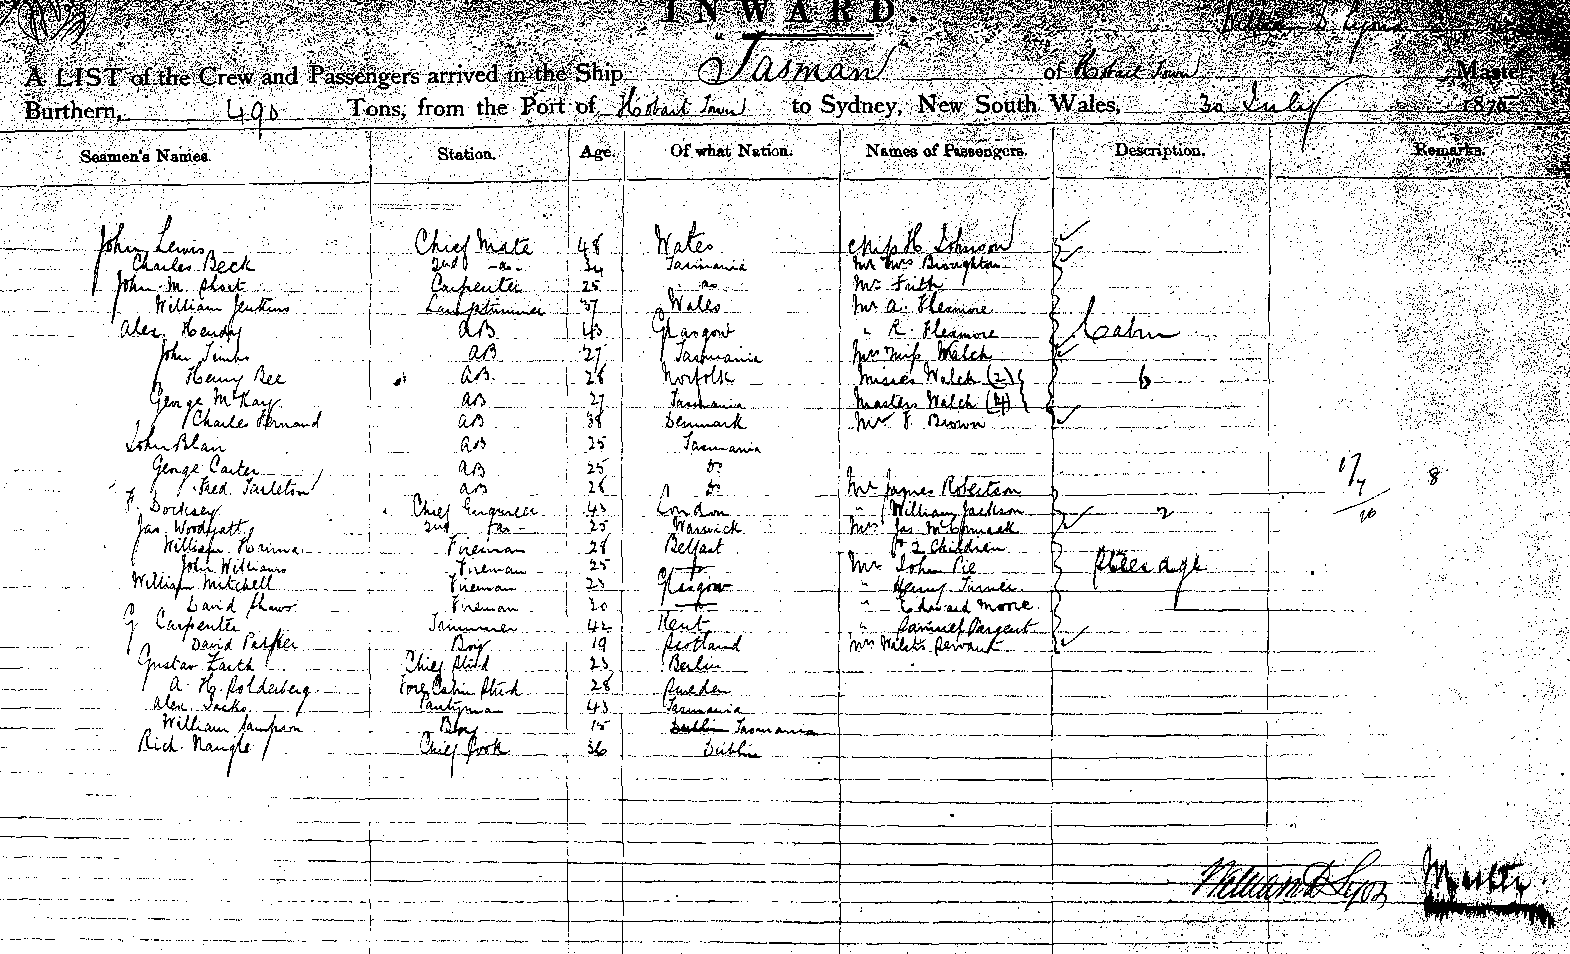 INWARD.
William D Lyons
A LIST of the Crew and Passengers arrived in the Ship "Tasman" of Hobart Town Master
Burthern, 490 Tons, from the Port of Hobart Town to Sydney, New South Wales, 30 July 187
Seamen's Names. Station. Age. Of what Nation. Names of Passengers. Description. Remarks.
John Lewis Chief Mate 48 Wales Johnson
Charles Beck 2nd -do- 34 Tasmania Mr Mrs Broughton
John M. Short Carpenter 25 do Mr Faith
William Jenkins Lamptrimmer 37 Wales Mr A. Flexmore
Alex. Hendry AB 43 Glasgow " R. Flexmore Cabin
John AB 27 Tasmania Mrs Miss Walch
Henry Bee AB 28 Norfolk Misses Walch (2) 6
George McKay AB 27 Tasmania Masters Walch
Charles AB 38 Denmark Mr Brown
John Blair AB 25 Tasmania
George Carter AB 25 Do
Fred. Tarleton AB 28 Do Mr James Robertson 8
F. Chief Engineer 43 London " William Jackson 2
Jas. 2nd -do- 25 Warwick Mrs Jas McCormack
William Fireman 28 Belfast & 2 Children
John Williams Fireman 25 Mr John Pie Steerage
William Mitchell Fireman 23 Glasgow " Henry Turner
David Shaw Fireman 30 " Edward Moore
G Carpenter Trimmer 42 Kent " Sargent
David Parker Boy 19 Scotland Mrs Walch's Servant
Gustav Chief Stwd 23 Berlin
A. H. Solderberg Fore Cabin Stwd 28 Sweden
Alex Jacks Pantryman 43 Tasmania
William Sampson Boy 15 Dublin Tasmania
Rich. Nangle Chief Cook 36 Dublin
William D Lyons Master